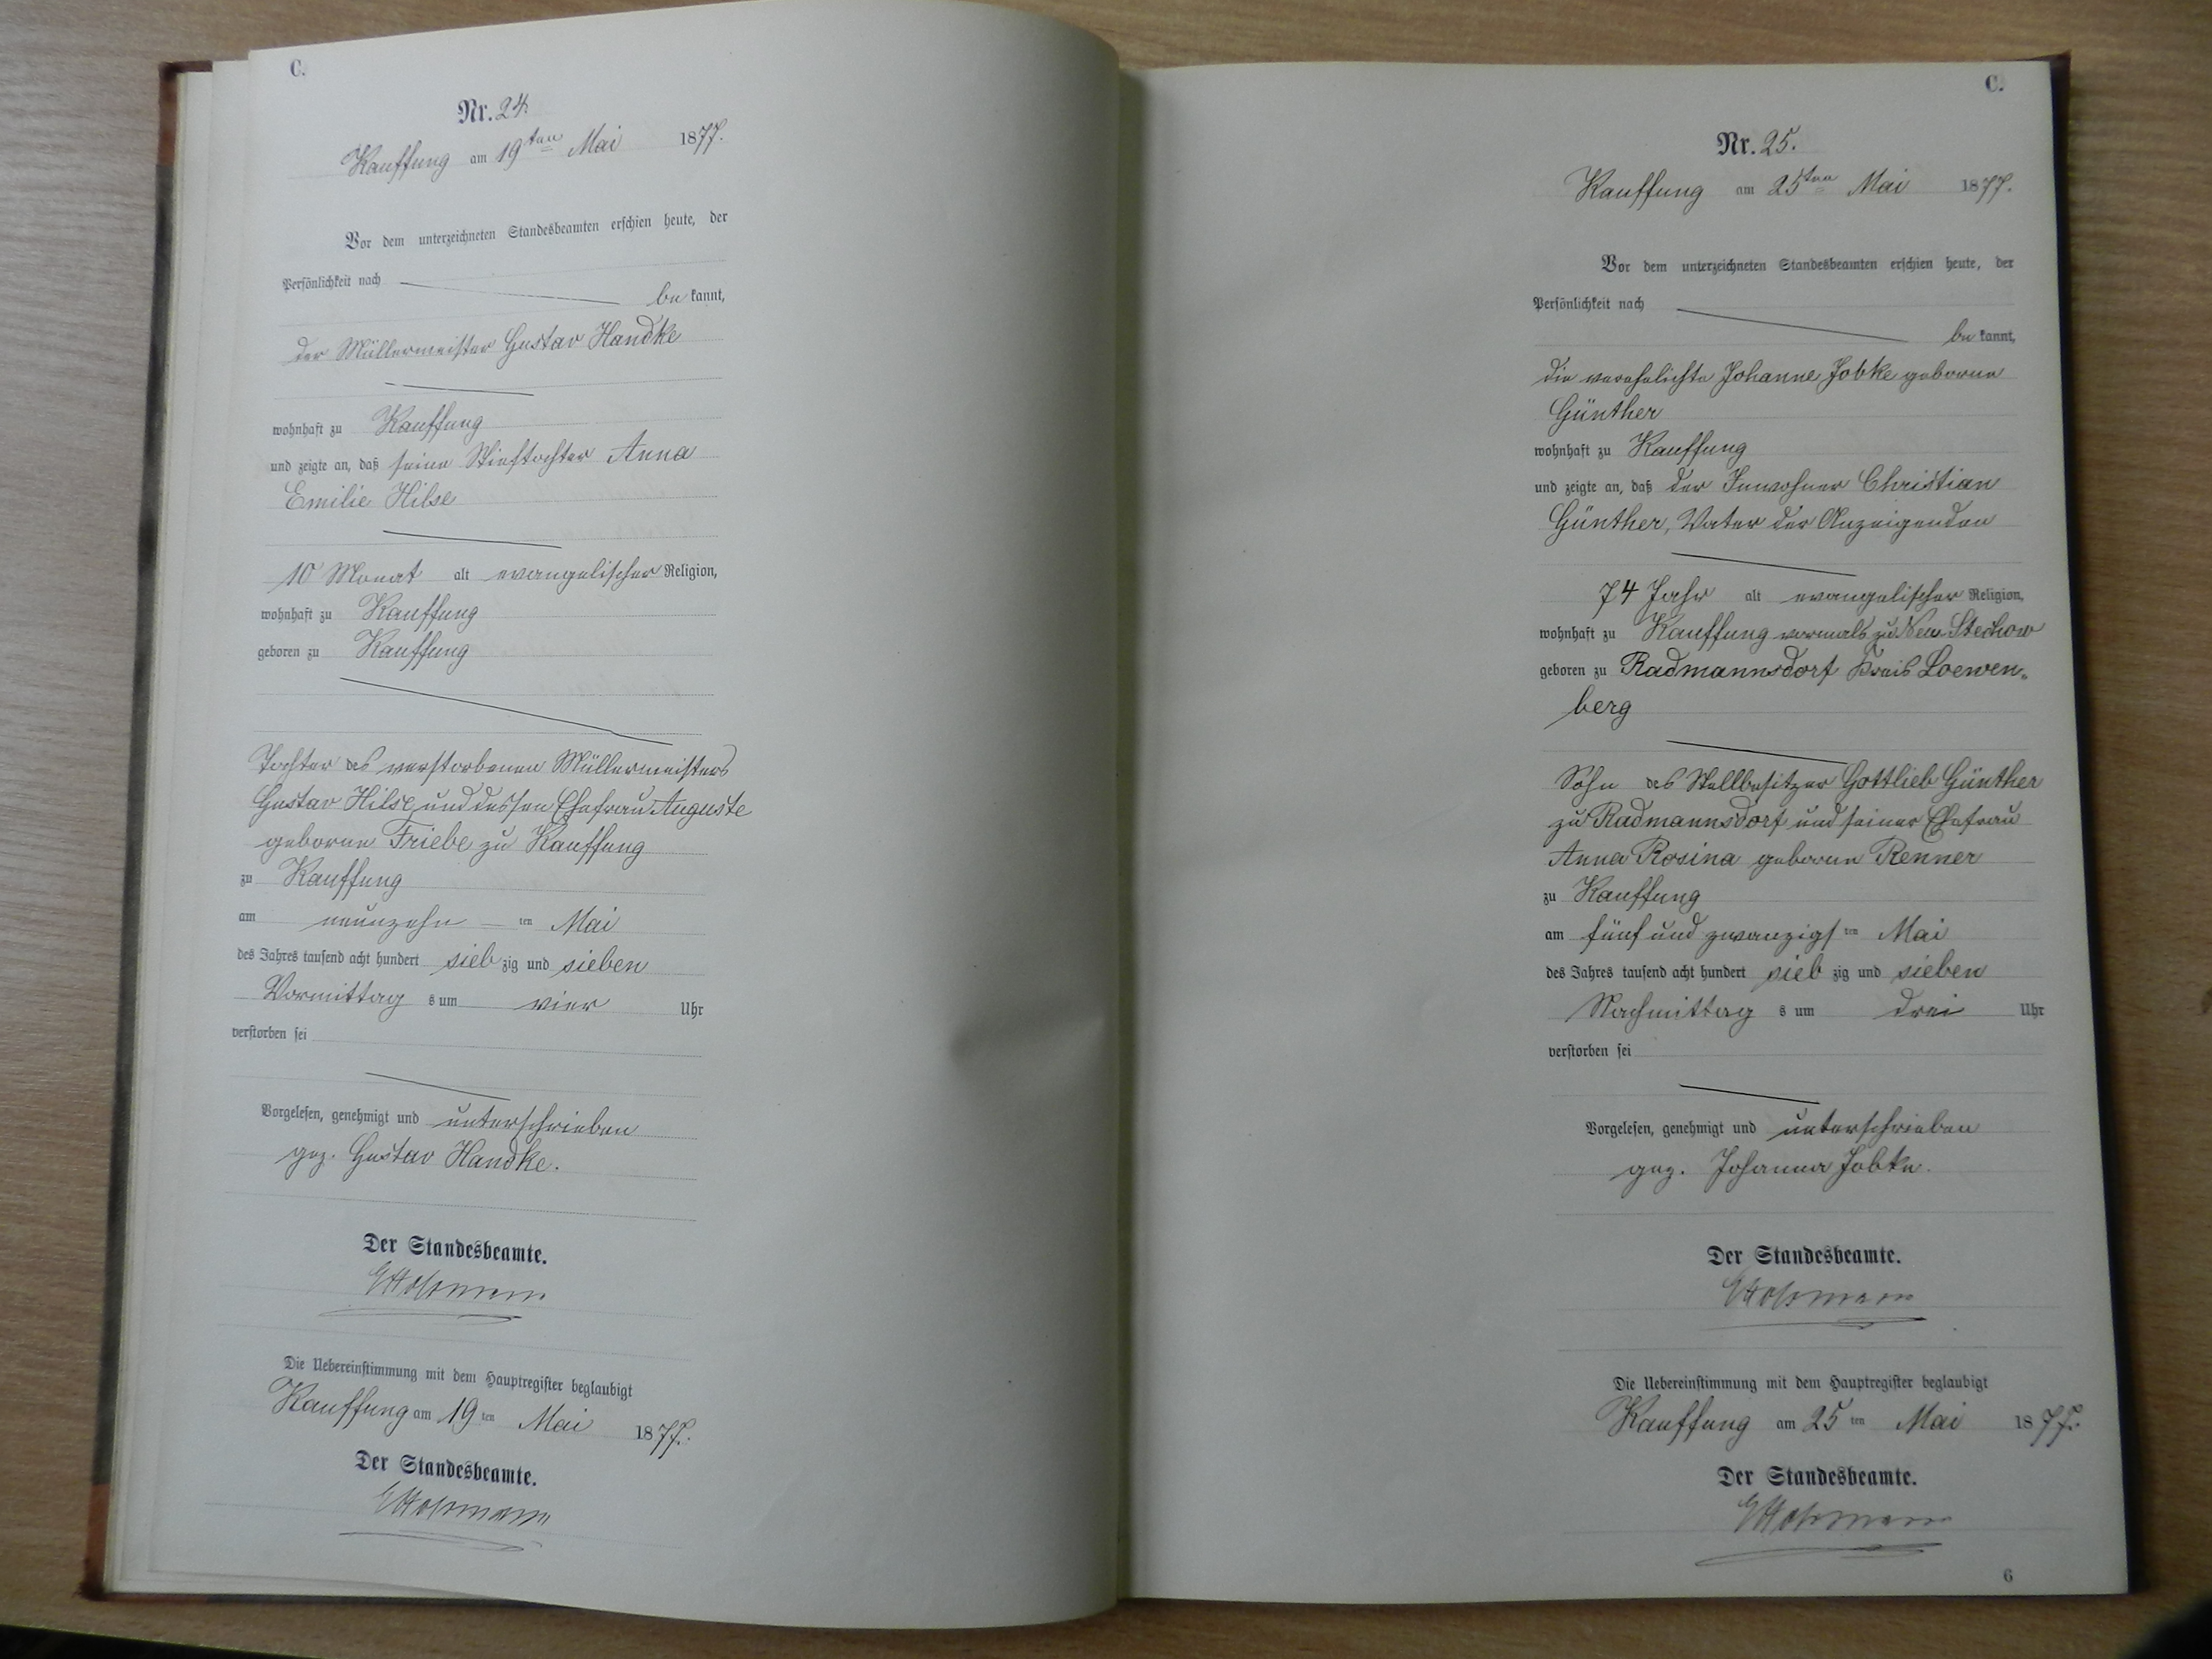 C.
Nr. 24.
Kauffung am 19ten Mai 1877.
Vor dem unterzeichneten Standesbeamten erschien heute, der
Persönlichkeit nach
be kannt,
der Müllermeister Gustav Handke
wohnhaft zu Kauffung
und zeigte an, daß seine Stieftochter Anna
Emilie Hilse
10 Monat alt evangelischer Religion,
wohnhaft zu Kauffung
geboren zu Kauffung
Tochter des verstorbenen Müllermeisters
Gustav Hilse und dessen Ehefrau Auguste
geborne Friebe zu Kauffung
zu Kauffung
am neunzehn ten Mai
des Jahres tausend acht hundert sieb zig und sieben
Vormittag s um vier Uhr
verstorben sei
Vorgelesen, genehmigt und unterschrieben
gez. Gustav Handke.
Der Standesbeamte.
Die Uebereinstimmung mit dem Hauptregister beglaubigt
Kauffung am 19 ten Mai 1877.
Der Standesbeamte.
C.
Nr. 25.
Kauffung am 25ten Mai 1877.
Vor dem unterzeichneten Standesbeamten erschien heute, der
Persönlichkeit nach
be kannt,
die verehelichte Johanne Jobke geborne
Günther
wohnhaft zu Kauffung
und zeigte an, daß der Inwohner Christian
Günther, Vater der Anzeigenden
74 Jahr alt evangelischer Religion,
wohnhaft zu Kauffung vormals zu Neu Stechow
geboren zu Radmannsdorf Kreis Loewen-
berg
Sohn des Stellbesitzer Gottlieb Günther
zu Radmannsdorf und seiner Ehefrau
Anna Rosina geborne Renner
zu Kauffung
am fünf und zwanzigs ten Mai
des Jahres tausend acht hundert sieb zig und sieben
Nachmittag s um drei Uhr
verstorben sei
Vorgelesen, genehmigt und unterschrieben
gez. Johanna Jobke.
Der Standesbeamte.
Die Uebereinstimmung mit dem Hauptregister beglaubigt
Kauffung am 25 ten Mai 1877.
Der Standesbeamte.
6